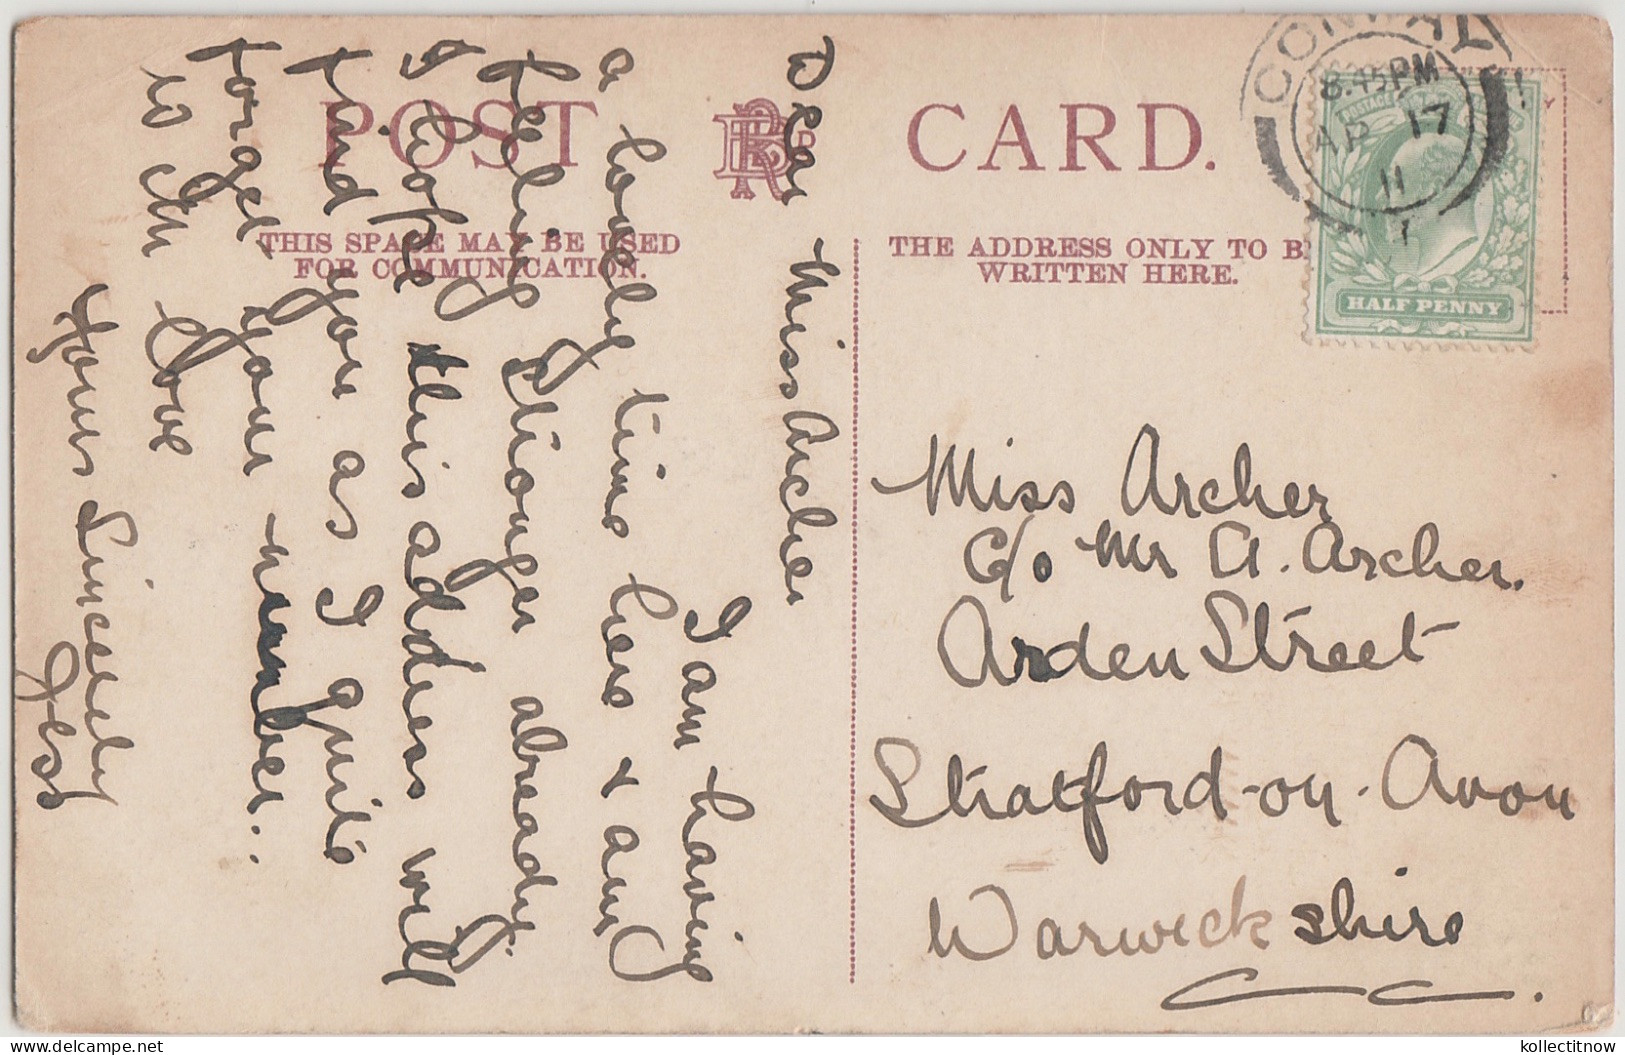 POST CARD.
THIS SPACE MAY BE USED
FOR COMMUNICATION.
THE ADDRESS ONLY TO B
WRITTEN HERE.
8.45PM
AP 17
11
HALF PENNY
Dear Miss Archer
I am having
a lovely time here & am
feeling stronger already.
I hope this address will
find you as I quite
forget your number.
With love
Yours Sincerely
Jess
Miss Archer
c/o Mr A. Archer.
Arden Street
Stratford-on-Avon
Warwickshire
kollectitnow